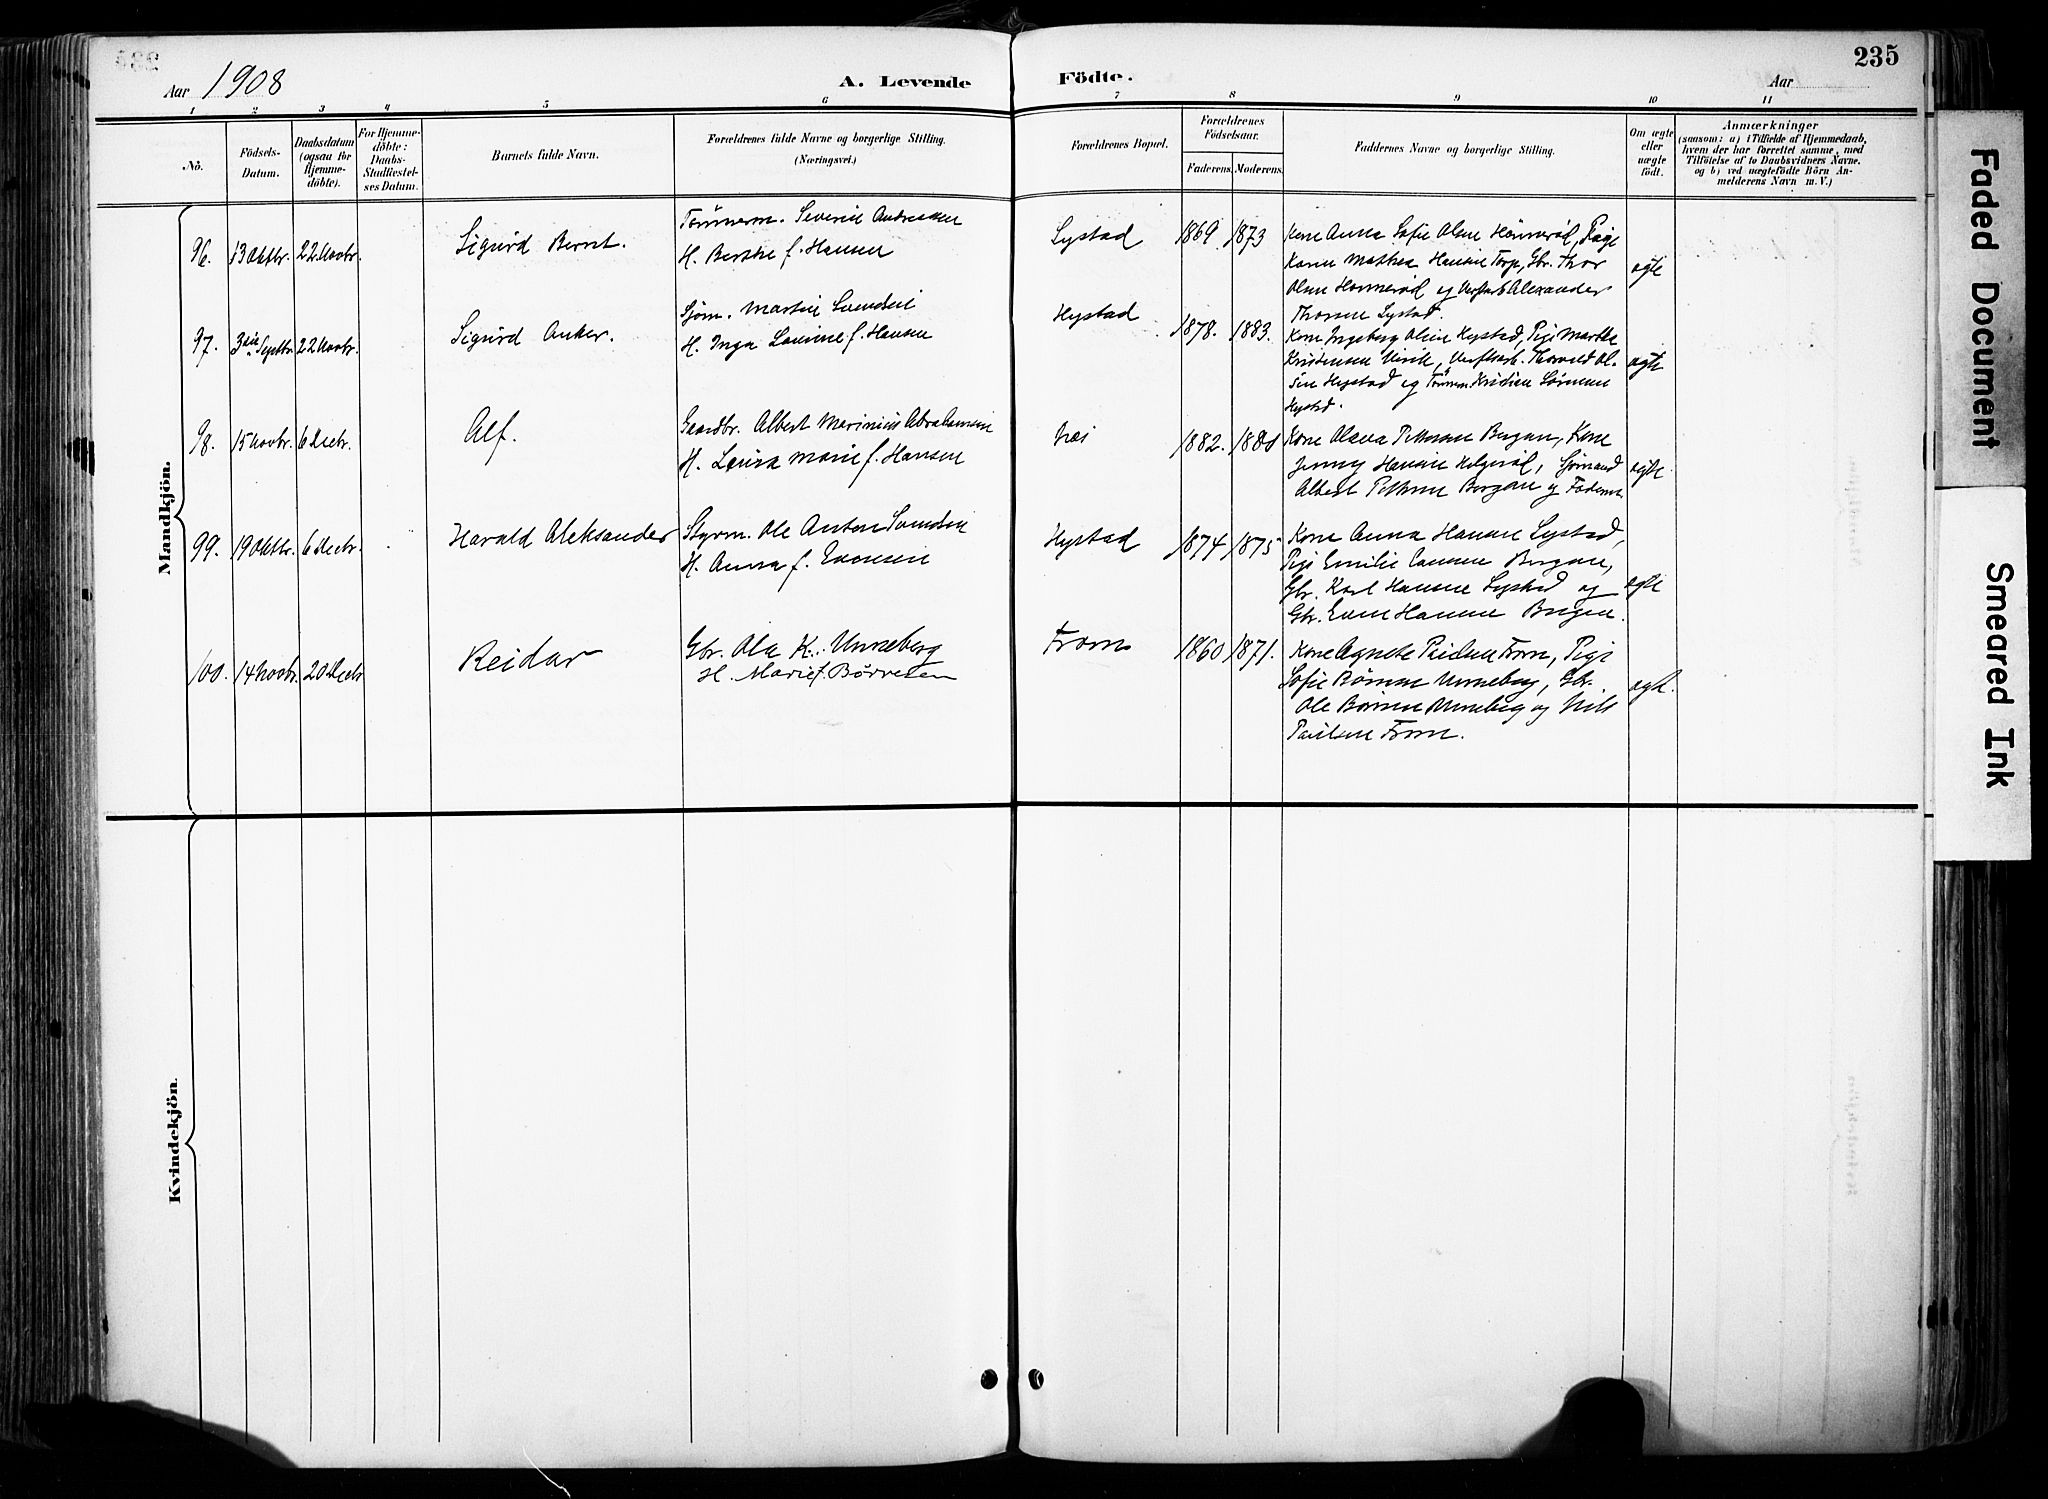 Aar 1908
A. Levende
Födte.
Aar
235
1 2 3 4 5 6 7 8 9 10 11
No.
Födsels-Datum.
Daabsdatum (ogsaa for Hjemmedöbte).
For Hjemmedöbte: Daabs-Stadfæstelses Datum.
Barnets fulde Navn.
Forældrenes fulde Navne og borgerlige Stilling.
(Næringsvei.)
Forældrenes Bopæl.
Forældrenes Födselsaar.
Faderens.
Moderens.
Faddernes Navne og borgerlige Stilling.
Om ægte eller uægte födt.
Anmærkninger
(saasom: a) i Tilfælde af Hjemmedaab, hvem der har forrettet samme, med Tilföielse af to Daabsvidners Navne. og b) ved uægtefödte Börn Anmelderens Navn m. V.)
Mandkjön.
96. 13 Oktbr. 22 Novbr. Sigurd Bernt.
Tömmerm. Severin Andreasen
H. Berthe f. Hansen
Lystad 1869 1873
Kone Anna Sofie Olsen Hönnerød, Pige
Karen Mathea Hansen Torp, Gbr. Thor
Olsen Hönnerød og Verftsarb Alexander
Thorsen Lystad.
ægte
97. 3die Septbr. 22 Novbr. Sigurd Anker.
Sjöm. Martin Svendsen
H. Inga Lovinne f. Hansen
Hystad 1878. 1883.
Kone Ingeborg Oline Hystad, Pige Marthe
Kristensen Virik, Verftsarb. Thorvald Ol-
sen Hystad og Tömrm. Kristian Sörensen
Hystad.
ægte
98. 15 Novbr. 6 Decbr. Alf.
Gaardbr. Albert Marinius Abrahamsen
H. Lovisa Marie f. Hansen
1882.
Kone Olava Pettersen Bergan, Kone
Jenny Hansen Helgerød, Sjömand
Albert Pettersen Bergan og Faderen
ægte
99. 19 Oktbr. 6 Decbr. Harald Aleksander
Styrm. Ole Anton Svendsen
H. Anna f. Evensen
Hystad 1874 1875
Kone Anna Hansen Lystad,
Pige Emilie Hansen Bergan,
Gbr. Karl Hansen Lystad og
Gbr. Even Hansen Bergan.
ægte
100. 14 Novbr. 20 Decbr Reidar
Gbr. Ole K. Unneberg
H. Marie f. Børresen
From 1860 1871.
Kone Agnete Paulsen From, Pige
Sofie Børresen Unneberg, Gbr.
Ole Børresen Unneberg og Nils
Paulsen From.
ægte.
Kvindekjön.
Faded Document
Smeared Ink